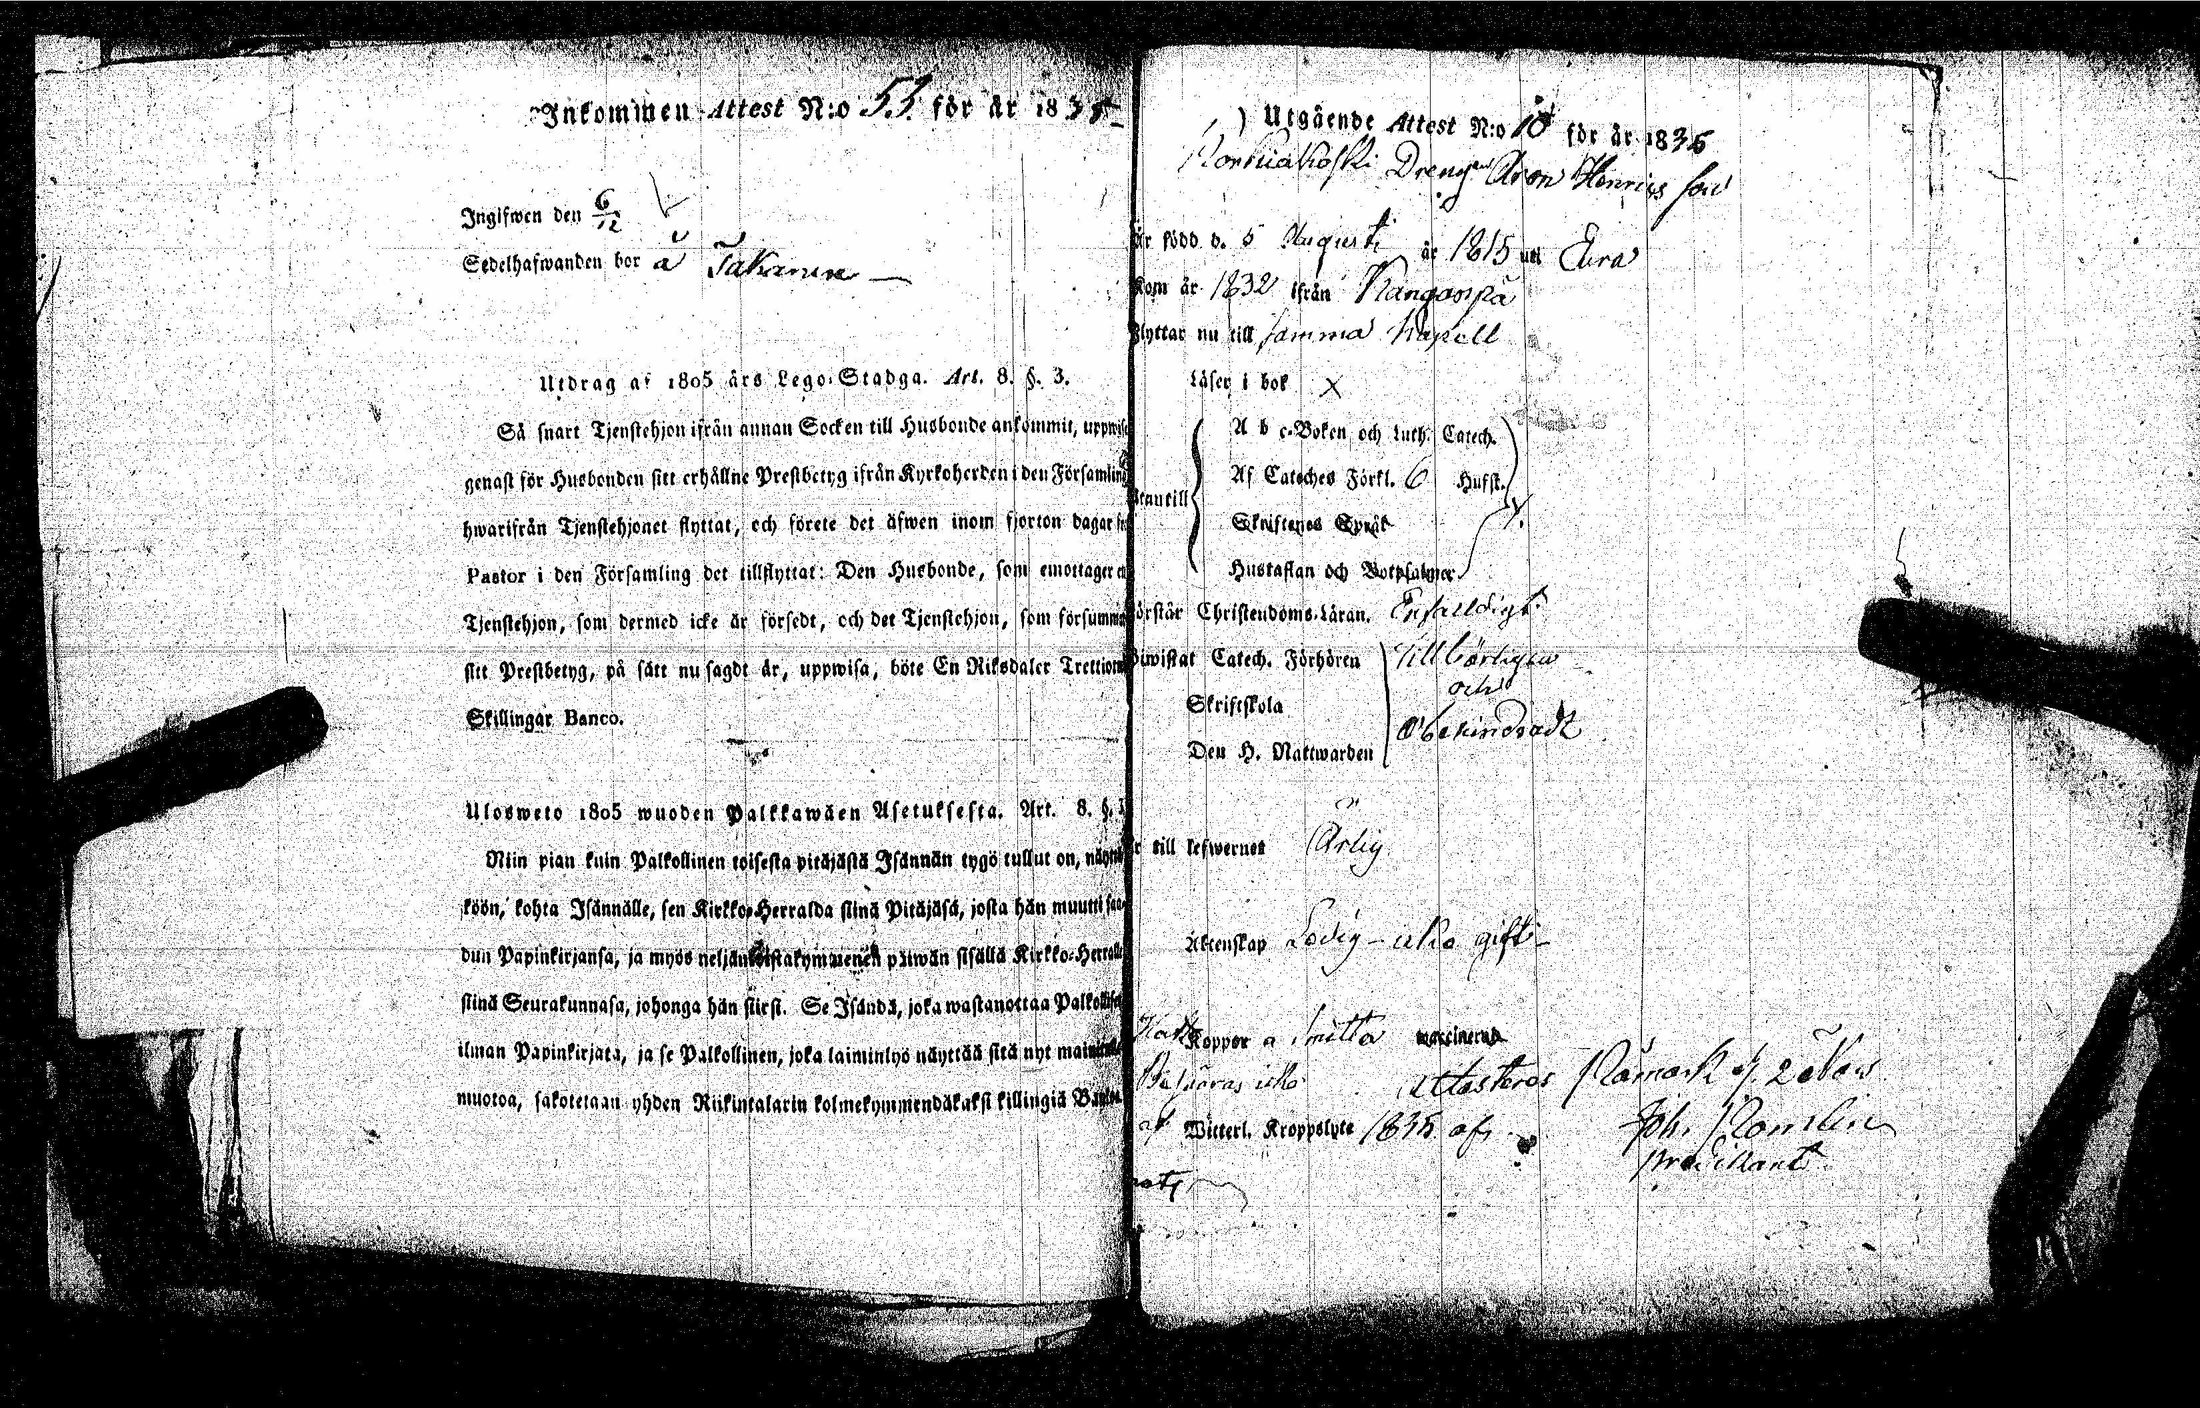 Inkommen Attest N:o 53 för år 1835
Ingifwen den 6/12
Sedelhafwanden bor å
Utdrag af 1805 års Lego-Stadga. Art. 8. §. 3.
Så snart Tjenstehjon ifrån annan Socken till Husbonde ankommit, uppwise
genast för Husbonden sitt erhållne Prestbetyg ifrån Kyrkoherden i den Församling
hwarifrån Tjenstehjonet flyttat, och förete det äfwen inom fjorton dagar
Pastor i den Församling det tillflyttat: Den Husbonde, som emottager
Tjenstehjon, som dermed icke är försedt, och det Tjenstehjon, som försumm
sitt Prestbetyg, på sätt nu sagdt är, uppwisa, böte En Riksdaler Trettio
Skillingar Banco.
Ulosweto 1805 wuoden Palkkawäen Asetuksesta. Art. 8. §.
Niin pian kuin Palkollinen toisesta pitäjästä Isännän tygö tullut on, näyt
köön, kohta Isännälle, sen Kirkko-Herralda siinä Pitäjäsä, josta hän muutti saa
dun Papinkirjansa, ja myös neljäntoistakymmenen päiwän sisällä Kirkko-Herralle
siinä Seurakunnasa, johonga hän siirsi. Se Isändä, joka wastanottaa Palkollise
ilman Papinkirjata, ja se Palkollinen, joka laiminlyö näyttää sitä nyt mainitulla
muotoa, sakotetaan yhden Riikintalarin kolmekymmendäkaksi killingiä Banko.
) Utgående Attest N:o 10 för år 1836
Drengen Aron Henrics son
är född d. 5 Augusti år 1815 uti Eura
Kom år 1832 ifrån Kangaspä
Flyttar nu till samma Kapell
Läser i bok x
A b c-Boken och Luth. Catech.
Af Cateches Förkl. 6 Hufst.
Utantill
Skriftenes Språk
Hustaflan och Botpsalmer
Förstår Christendoms-Läran. Enfaldigt
Biwistat Catech. Förhören Tillbörligen
och
Skriftskola
Obehindradt
Den H. Nattwarden
Är till lefwernet Ärlig
Äktenskap Ledig icke gift
Haft Koppor a Smitta vaccinerad
Attesteras
af Witterl. Kroppslyte 1835 af
Joh.
Predikant